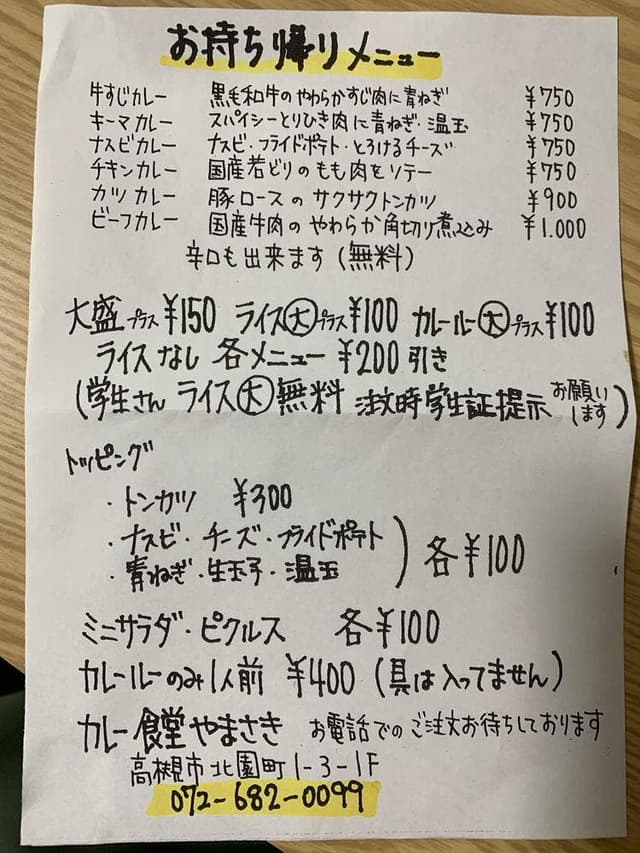 お持ち帰りメニュー
牛すじカレー 黒毛和牛のやわらかすじ肉に青ねぎ ¥750
キーマカレー スパイシーとりひき肉に青ねぎ・温玉 ¥750
ナスビカレー ナスビ・フライドポテト・とろけるチーズ ¥750
チキンカレー 国産若どりのもも肉をソテー ¥750
カツカレー 豚ロースのサクサクトンカツ ¥900
ビーフカレー 国産牛肉のやわらか角切り煮込み ¥1.000
辛口も出来ます(無料)
大盛プラス¥150 ライス大プラス¥100 カレールー大プラス¥100
ライスなし 各メニュー ¥200引き
(学生さん ライス大無料 注文時学生証提示お願いします)
トッピング
・トンカツ ¥300
・ナスビ・チーズ・フライドポテト
・青ねぎ・生玉子・温玉 )各¥100
ミニサラダ・ピクルス 各¥100
カレールーのみ1人前 ¥400(具は入ってません)
カレー食堂やまさき お電話でのご注文お待ちしております
高槻市北園町1-3-1F
072-682-0099